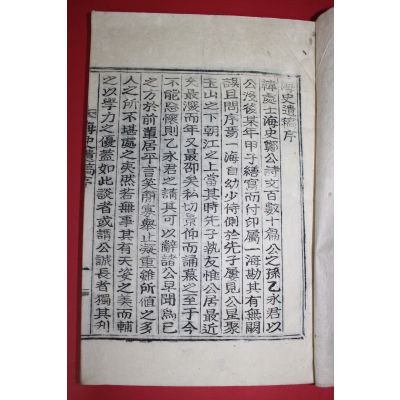 海史遺稿序
韓處士海史鄭公詩文百數十篇公之孫乙永君以
公沒後某年甲子繕寫而付印屬一海勘其有無闕
誤且問序焉一海自幼少侍側於先子屢見公是聚
玉山之下朝江之上當其時先子執友惟公居最近
交最深而年又最邵矣私切景仰而誦慕之至于今
不能忘懷則乙永君之請其可以辭諸公早聞爲己
之方於前叢居平言笑簡寡擧止凝重雖所値之多
人之所不堪處之夷然若無事其有天姿之美而輔
之以學力之優蓋如此談者或謂公誠長者獨其利
海史遺稿序
一